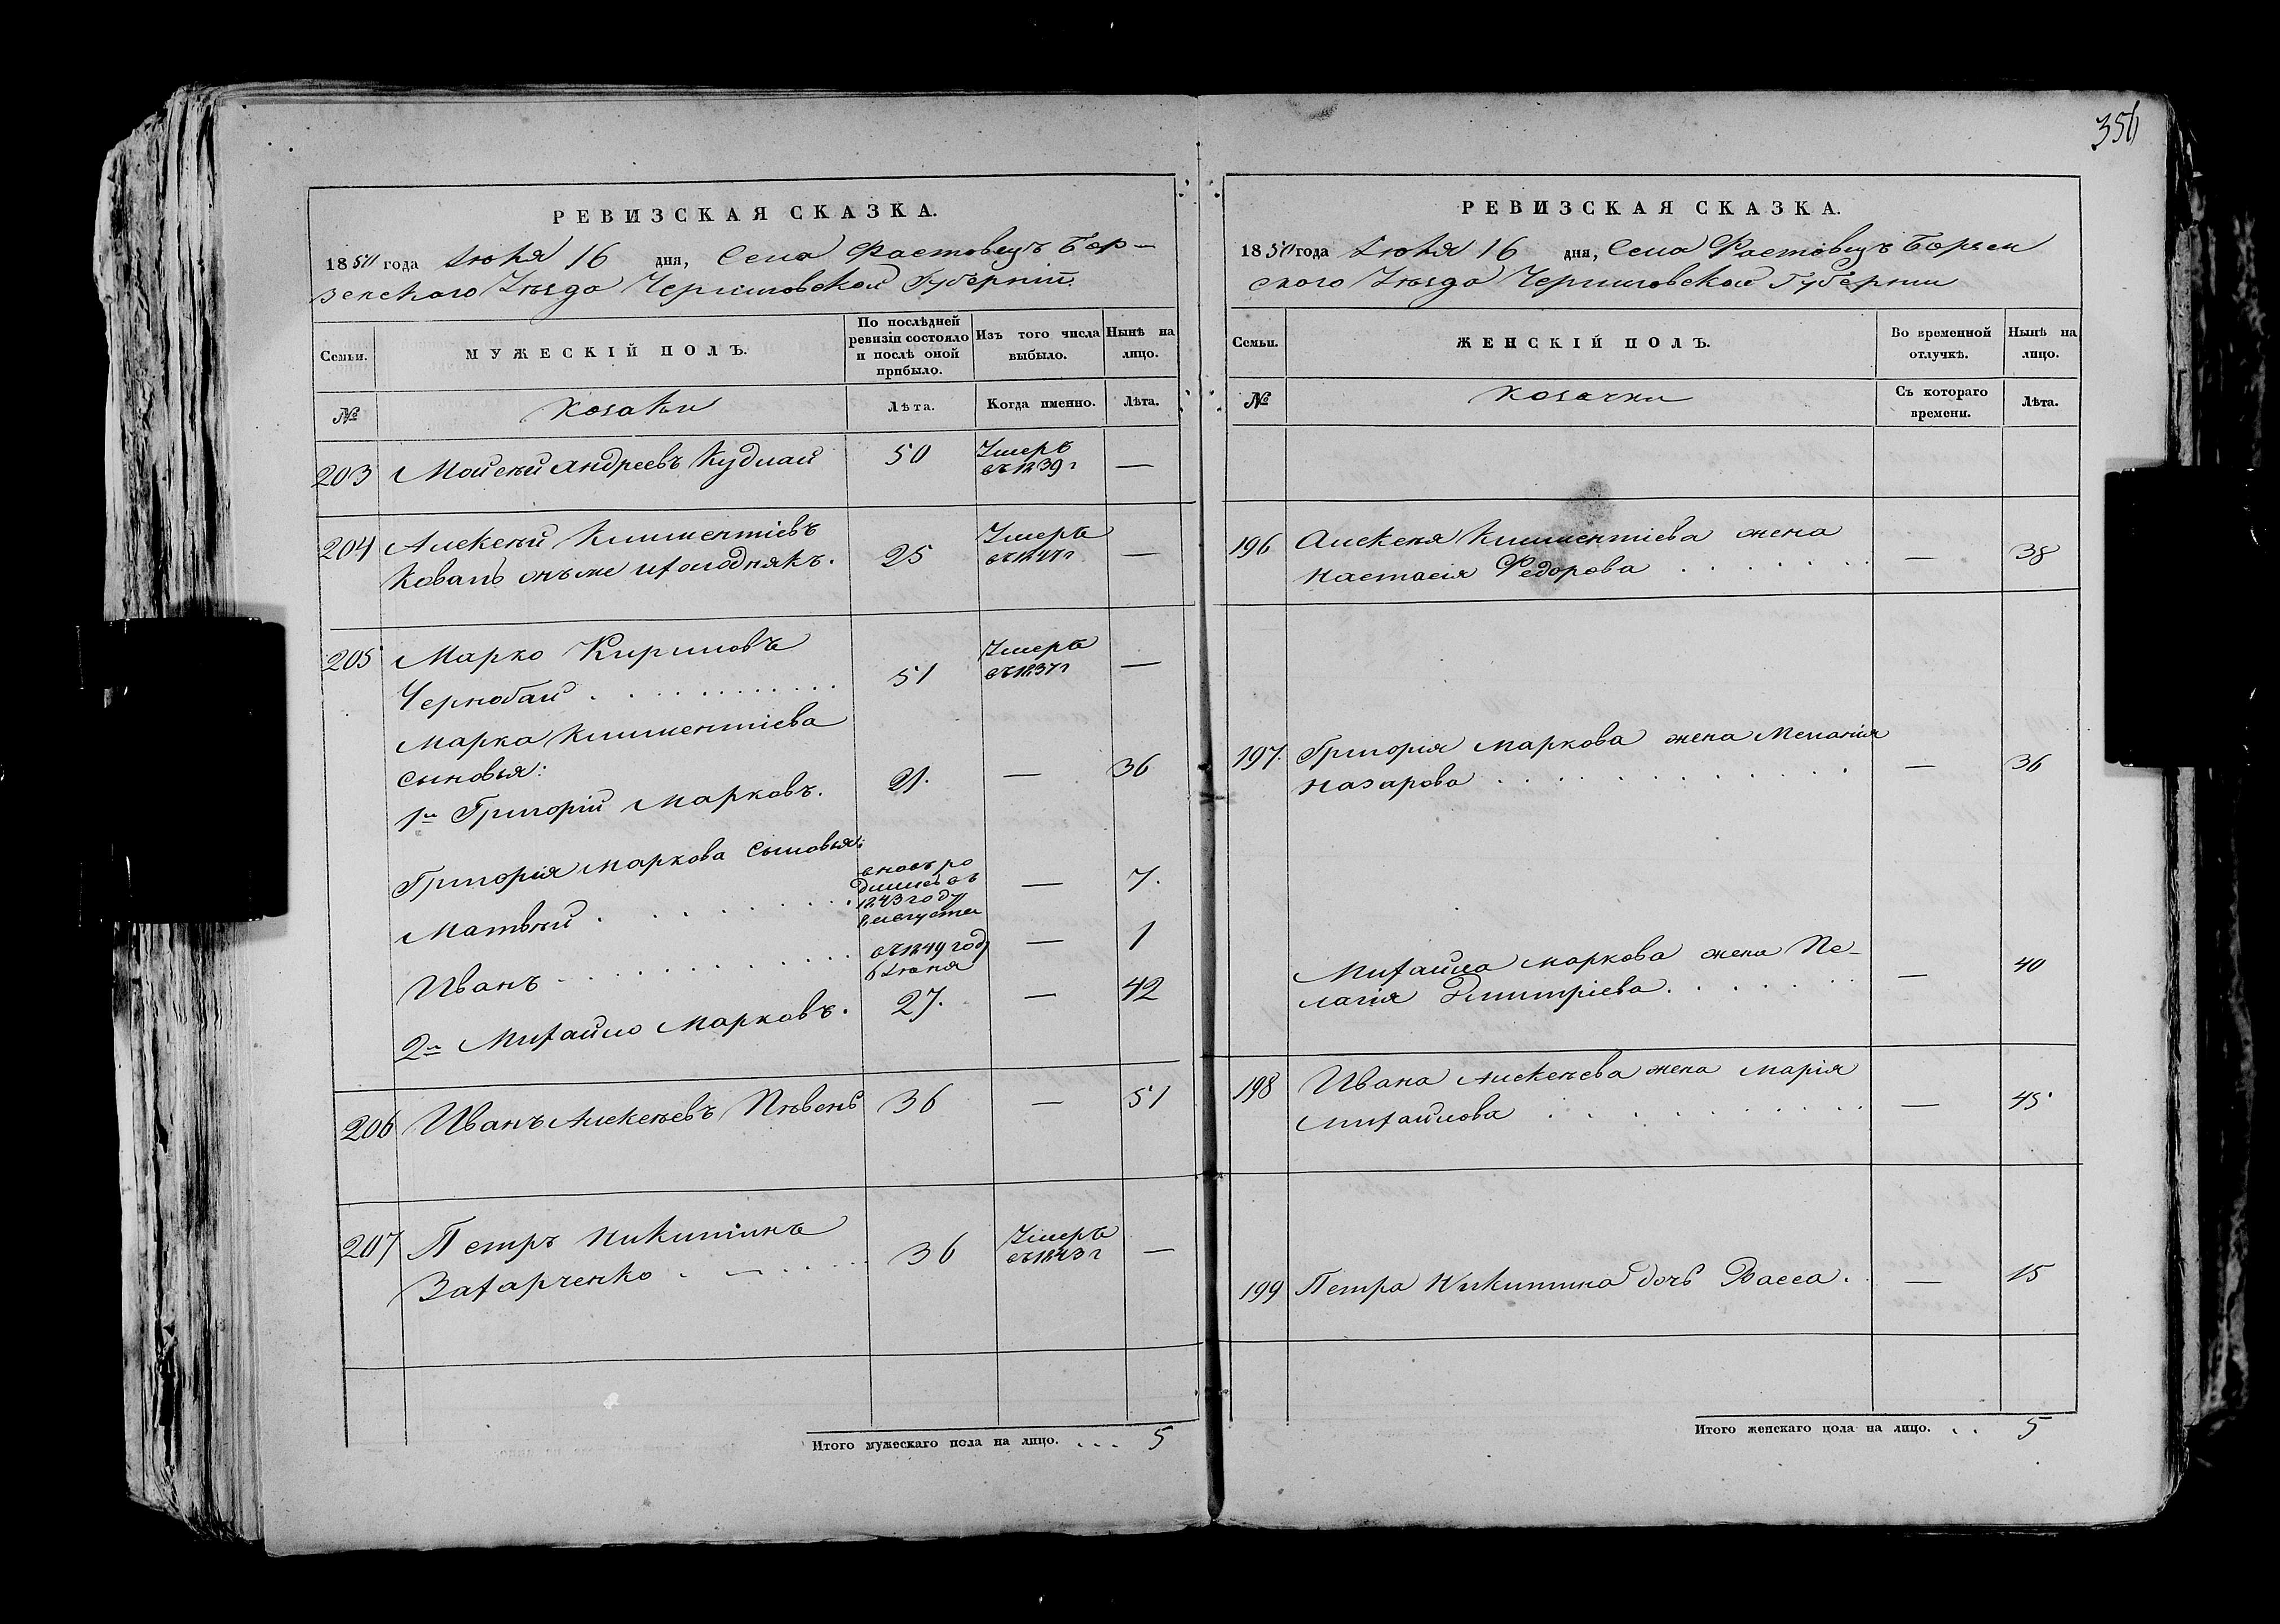 356
РЕВИЗСКАЯ СКАЗКА.
1850 года Іюня 16 дня, Села Фастовецъ Бор-
зенскаго Уѣзда Черниговской Губерніи.
Семьи.
МУЖЕСКІЙ ПОЛЪ.
По послѣдней ревизіи состояло и послѣ оной прибыло.
Изъ того числа выбыло.
Нынѣ на лицо.
№
Козаки
Лѣта.
Когда именно.
Лѣта.
203 Мойсей Андреевъ Кудлай 50 Умеръ въ 1839 г —
204 Алексѣй Климентіевъ
Коваль онъ же и Холоднякъ. 25 Умеръ въ 1847 г —
205 Марко Кириловъ
Чернобай . . . 51 Умеръ въ 1837 г —
Марка Климентіева
сыновья:
1й Григорій Марковъ. 21. — 36
Григорія Маркова сыновья:
Матвѣй . . . вновь родился въ 1843 году Августа — 7.
Иванъ . . . въ 1849 году 6 Іюня — 1
2й Михайло Марковъ. 27. — 42
206 Иванъ Алексѣевъ Пѣвень 36 — 51
207 Петръ Никитинъ
Захарченко . . . 36 Умеръ въ 1843 г —
Итого мужескаго пола на лицо. . . . 5
РЕВИЗСКАЯ СКАЗКА.
1850 года Іюня 16 дня, Села Фастовецъ Борзен
ского Уѣзда Черниговской Губерніи
Семьи.
ЖЕНСКІЙ ПОЛЪ.
Во временной отлучкѣ.
Нынѣ на лицо.
№
Козачки
Съ котораго времени.
Лѣта.
196 Алексѣя Климентіева жена
Настасія Федорова . . . — 38
197. Григорія Маркова жена Меланія
Назарова . . . — 36
Михайла Маркова жена Пе-
лагія Дмитріева . . . — 40
198 Ивана Алексѣева жена Марія
Михайлова . . . — 45
199 Петра Никитина дочь Васса. — 15
Итого женскаго пола на лицо. . . 5